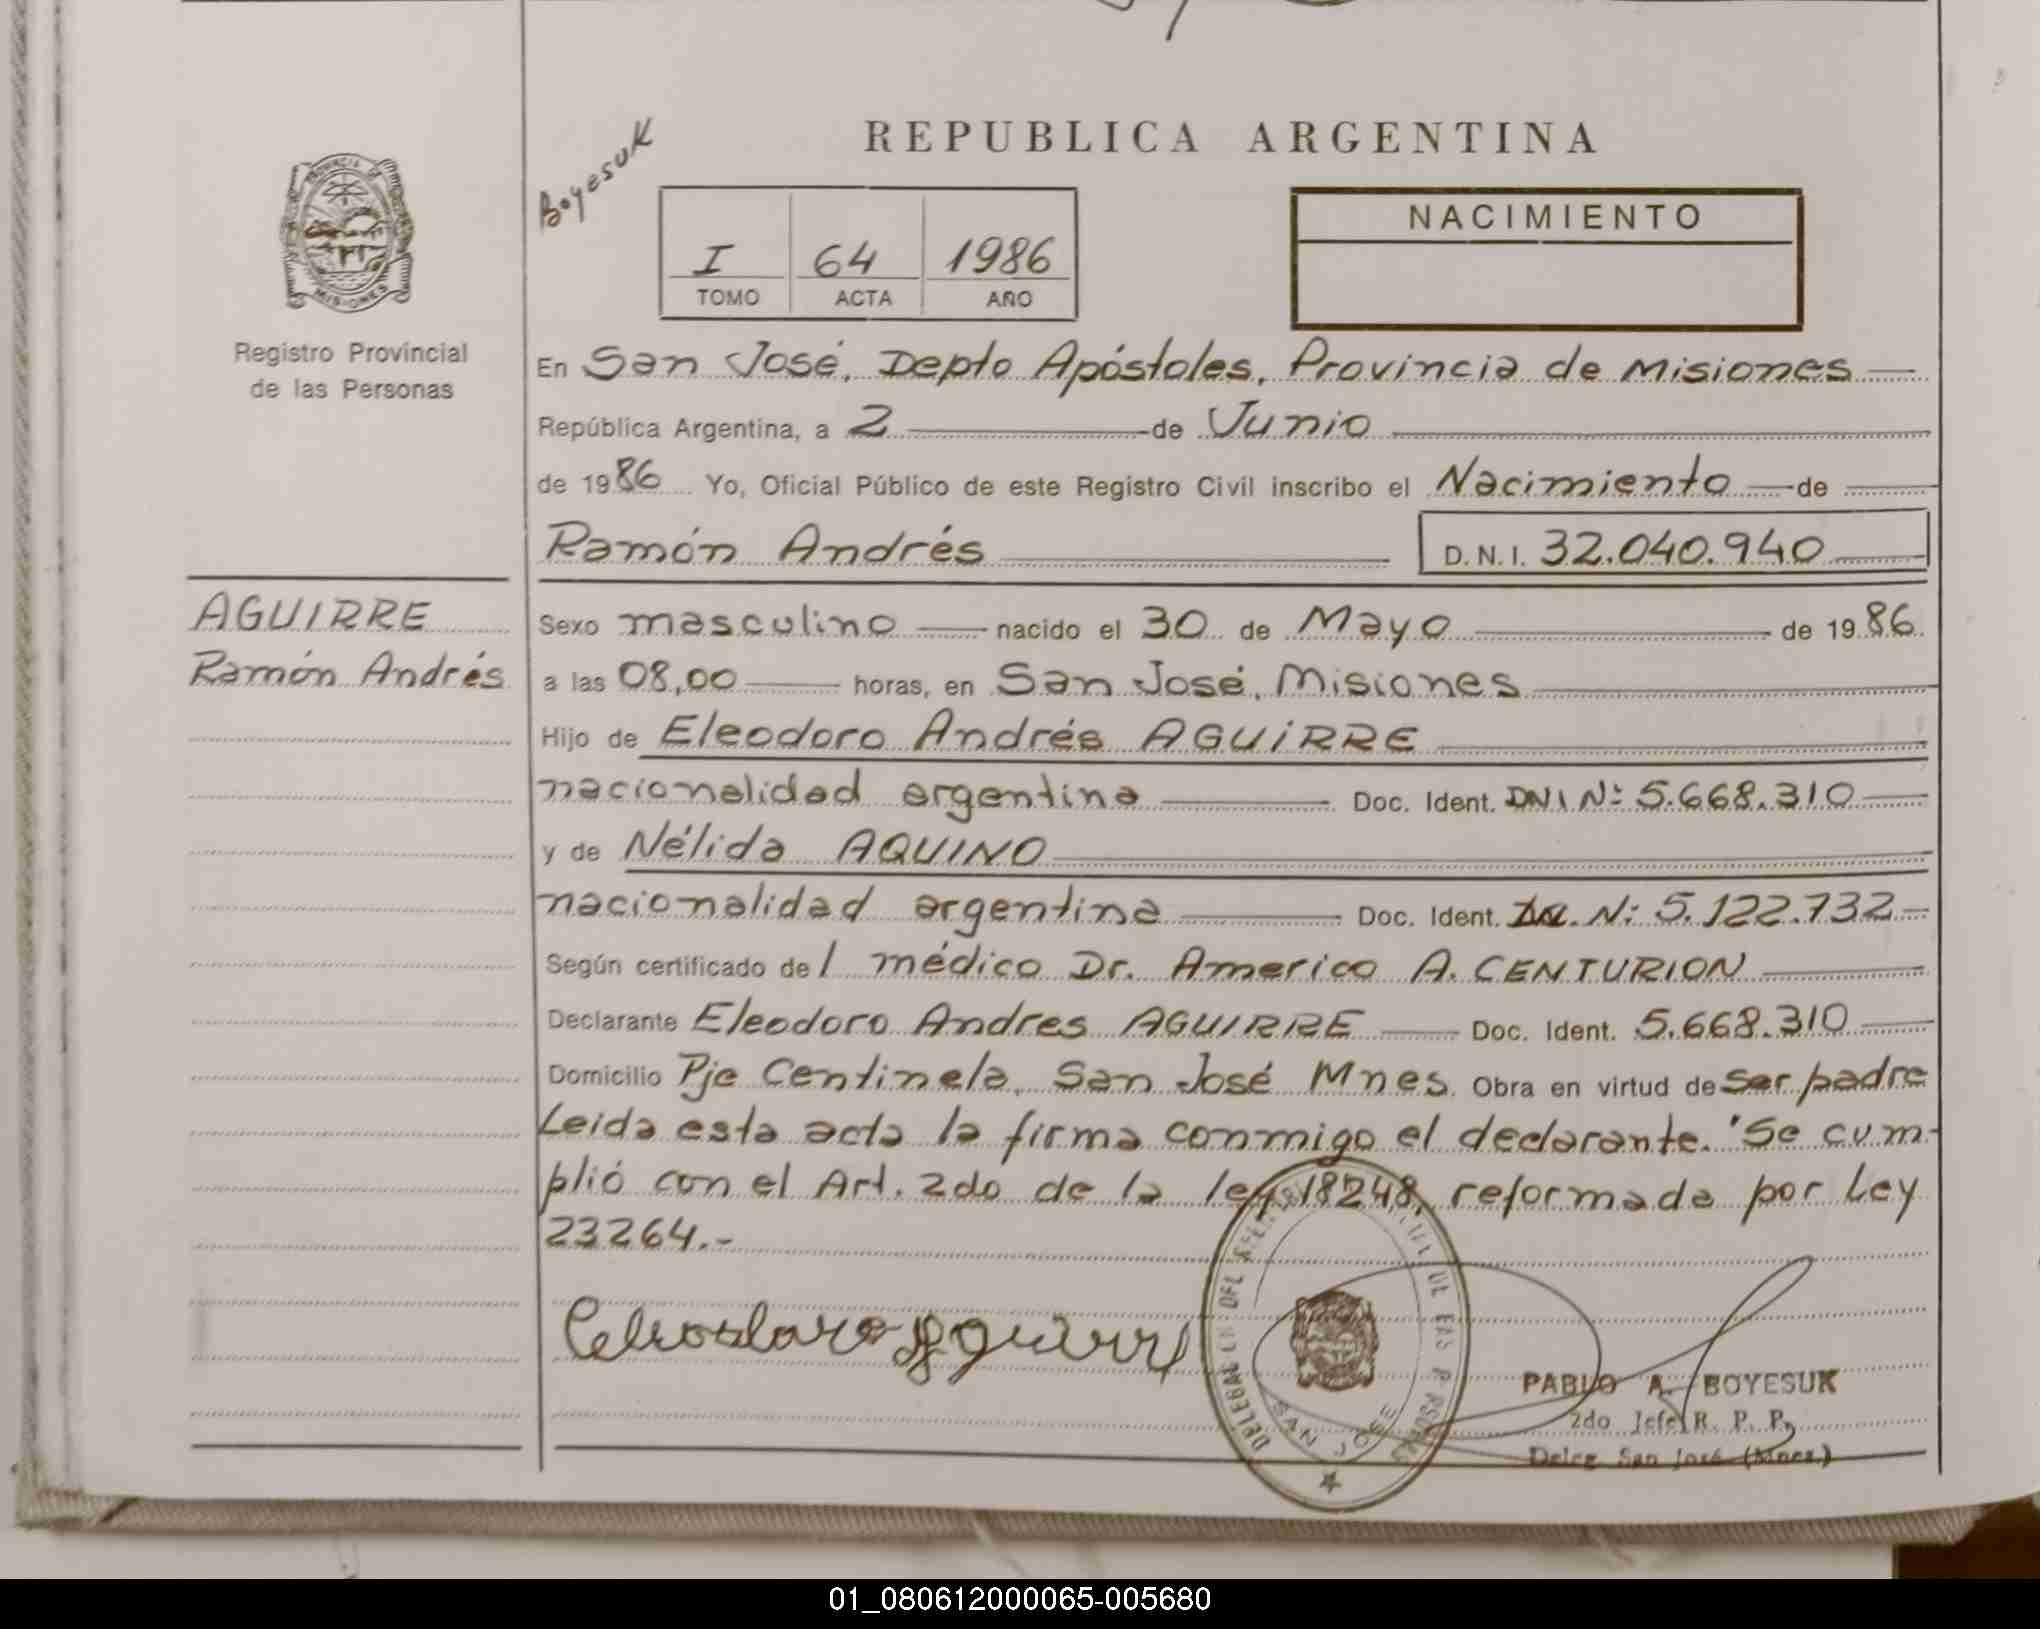 REPUBLICA ARGENTINA
Boyesuk
I 64 1986
TOMO ACTA AÑO
NACIMIENTO
PROVINCIA DE
MISIONES
Registro Provincial
de las Personas
En San José, Depto Apóstoles, Provincia de Misiones
República Argentina, a 2 de Junio
de 1986 Yo, Oficial Público de este Registro Civil inscribo el Nacimiento de
Ramón Andrés D.N.I. 32.040.940
AGUIRRE
Ramón Andrés
Sexo masculino nacido el 30 de Mayo de 1986
a las 08,00 horas, en San José, Misiones
Hijo de Eleodoro Andrés AGUIRRE
nacionalidad argentina Doc. Ident. DNI N: 5.668.310
y de Nélida AQUINO
nacionalidad argentina Doc. Ident. N: 5.122.732
Según certificado del médico Dr. Americo A. CENTURION
Declarante Eleodoro Andres AGUIRRE Doc. Ident. 5.668.310
Domicilio Pje Centinela, San José Mnes. Obra en virtud de ser padre
Leida esta acta la firma conmigo el declarante. "Se cum-
plió con el Art. 2do de la ley 18248, reformada por Ley
23264.-
Eleodoro Aguirre
SAN JOSE
PABLO A. BOYESUK
2do Jefe R. P. P.
Deleg San José (Mnes.)
01_080612000065-005680